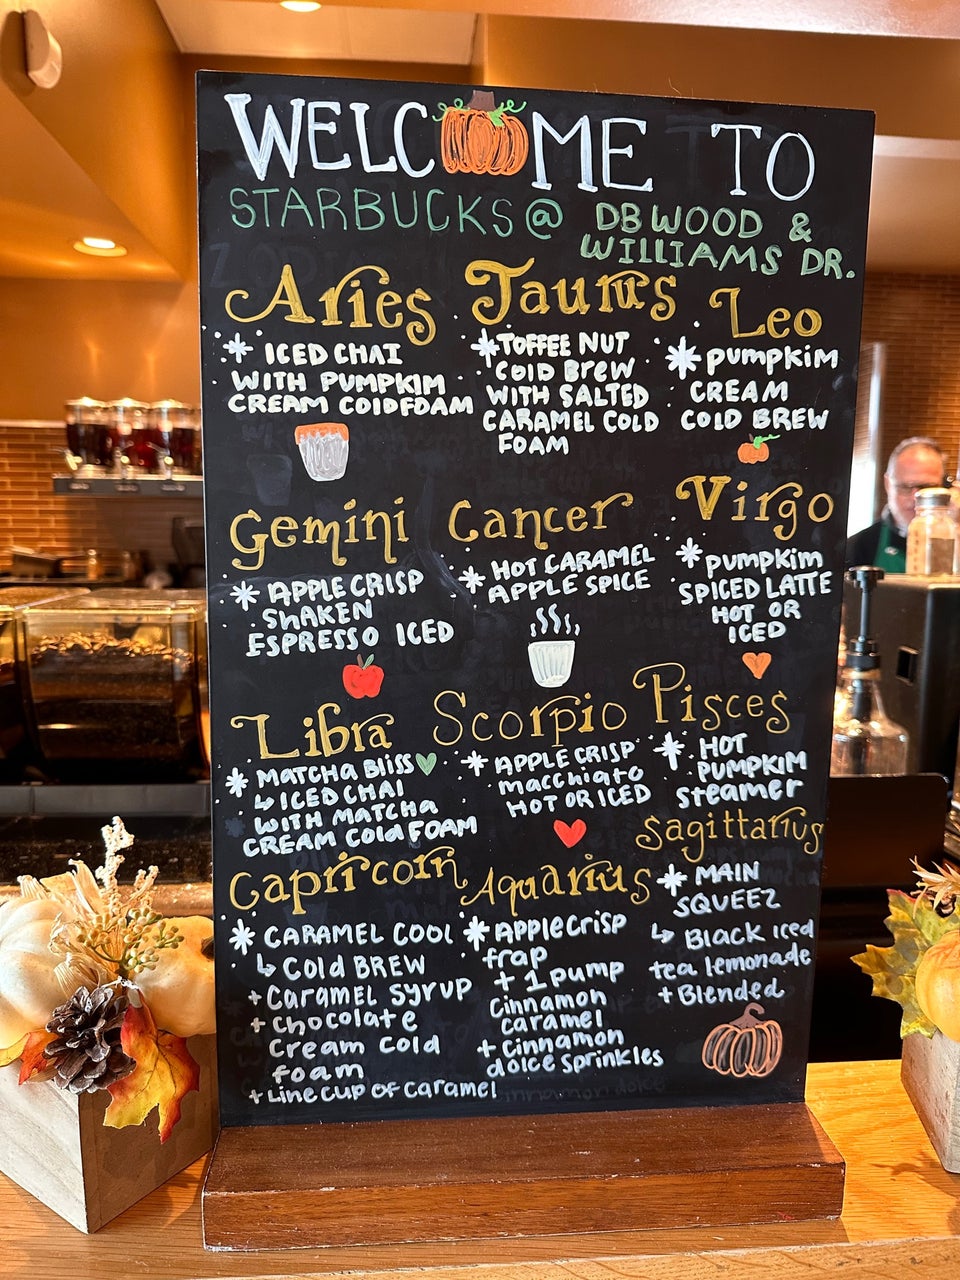 WELCOME TO
STARBUCKS @ DB WOOD &
WILLIAMS DR.
Aries
* ICED CHAI
WITH PUMPKIM
CREAM COLDFOAM
Taurus
* TOFFEE NUT
COLD BREW
WITH SALTED
CARAMEL COLD
FOAM
Leo
* PUMPKIM
CREAM
COLD BREW
Gemini
* APPLE CRISP
SHAKEN
ESPRESSO ICED
Cancer
* HOT CARAMEL
APPLE SPICE
Virgo
* PUMPKIM
SPICED LATTE
HOT OR
ICED
Libra
* MATCHA BLISS
↳ ICED CHAI
WITH MATCHA
CREAM COLD FOAM
Scorpio
* APPLE CRISP
macchiato
HOT OR ICED
Pisces
* HOT
PUMPKIM
steamer
Sagittarius
* MAIN
SQUEEZ
↳ Black iced
tea lemonade
+ Blended
Capricorn
* CARAMEL COOL
↳ Cold BREW
+ Caramel syrup
+ chocolate
cream cold
foam
+ Line cup of caramel
Aquarius
* Apple crisp
frap
+ 1 pump
cinnamon
caramel
+ cinnamon
dolce sprinkles